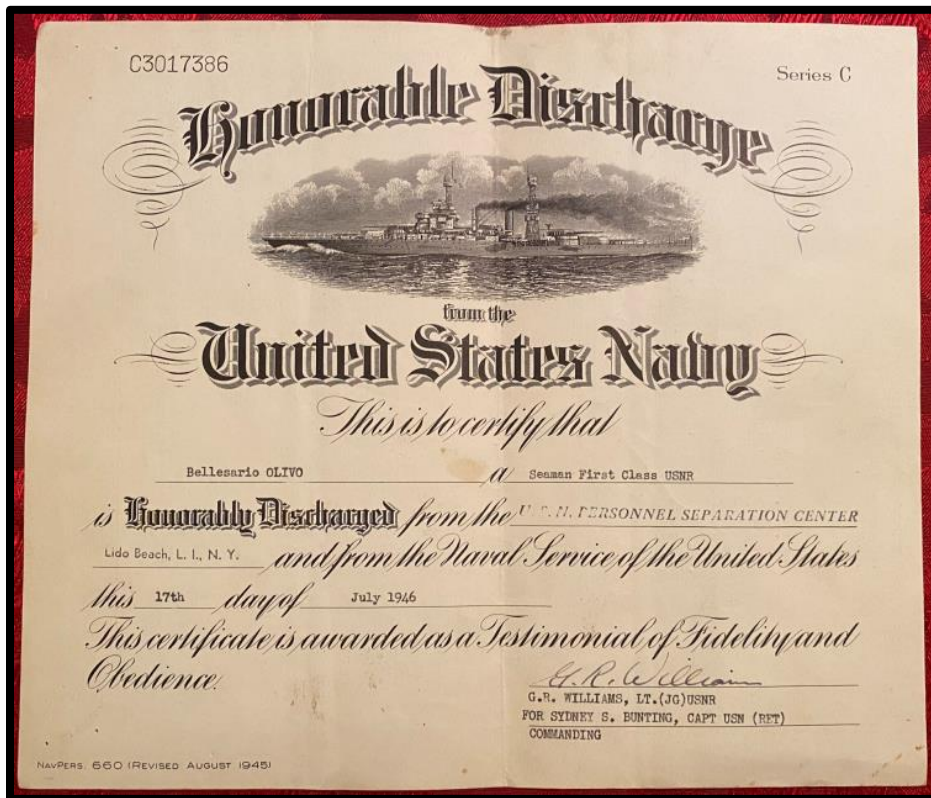 C3017386
Series C
Honorable Discharge
from the
United States Navy
This is to certify that
Bellesario OLIVO a Seaman First Class USNR
is Honorably Discharged from the U.S.N. PERSONNEL SEPARATION CENTER
Lido Beach, L. I., N. Y. and from the Naval Service of the United States
this 17th day of July 1946
This certificate is awarded as a Testimonial of Fidelity and
Obedience.
G. R. Williams
G.R. WILLIAMS, LT.(JG)USNR
FOR SYDNEY S. BUNTING, CAPT USN (RET)
COMMANDING
NAVPERS. 660 (REVISED AUGUST 1945)